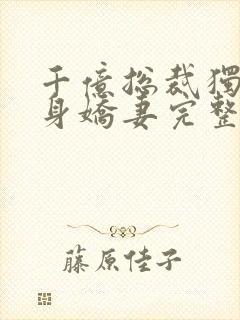 千億總裁獨
身嬌妻完整
藤原佳子